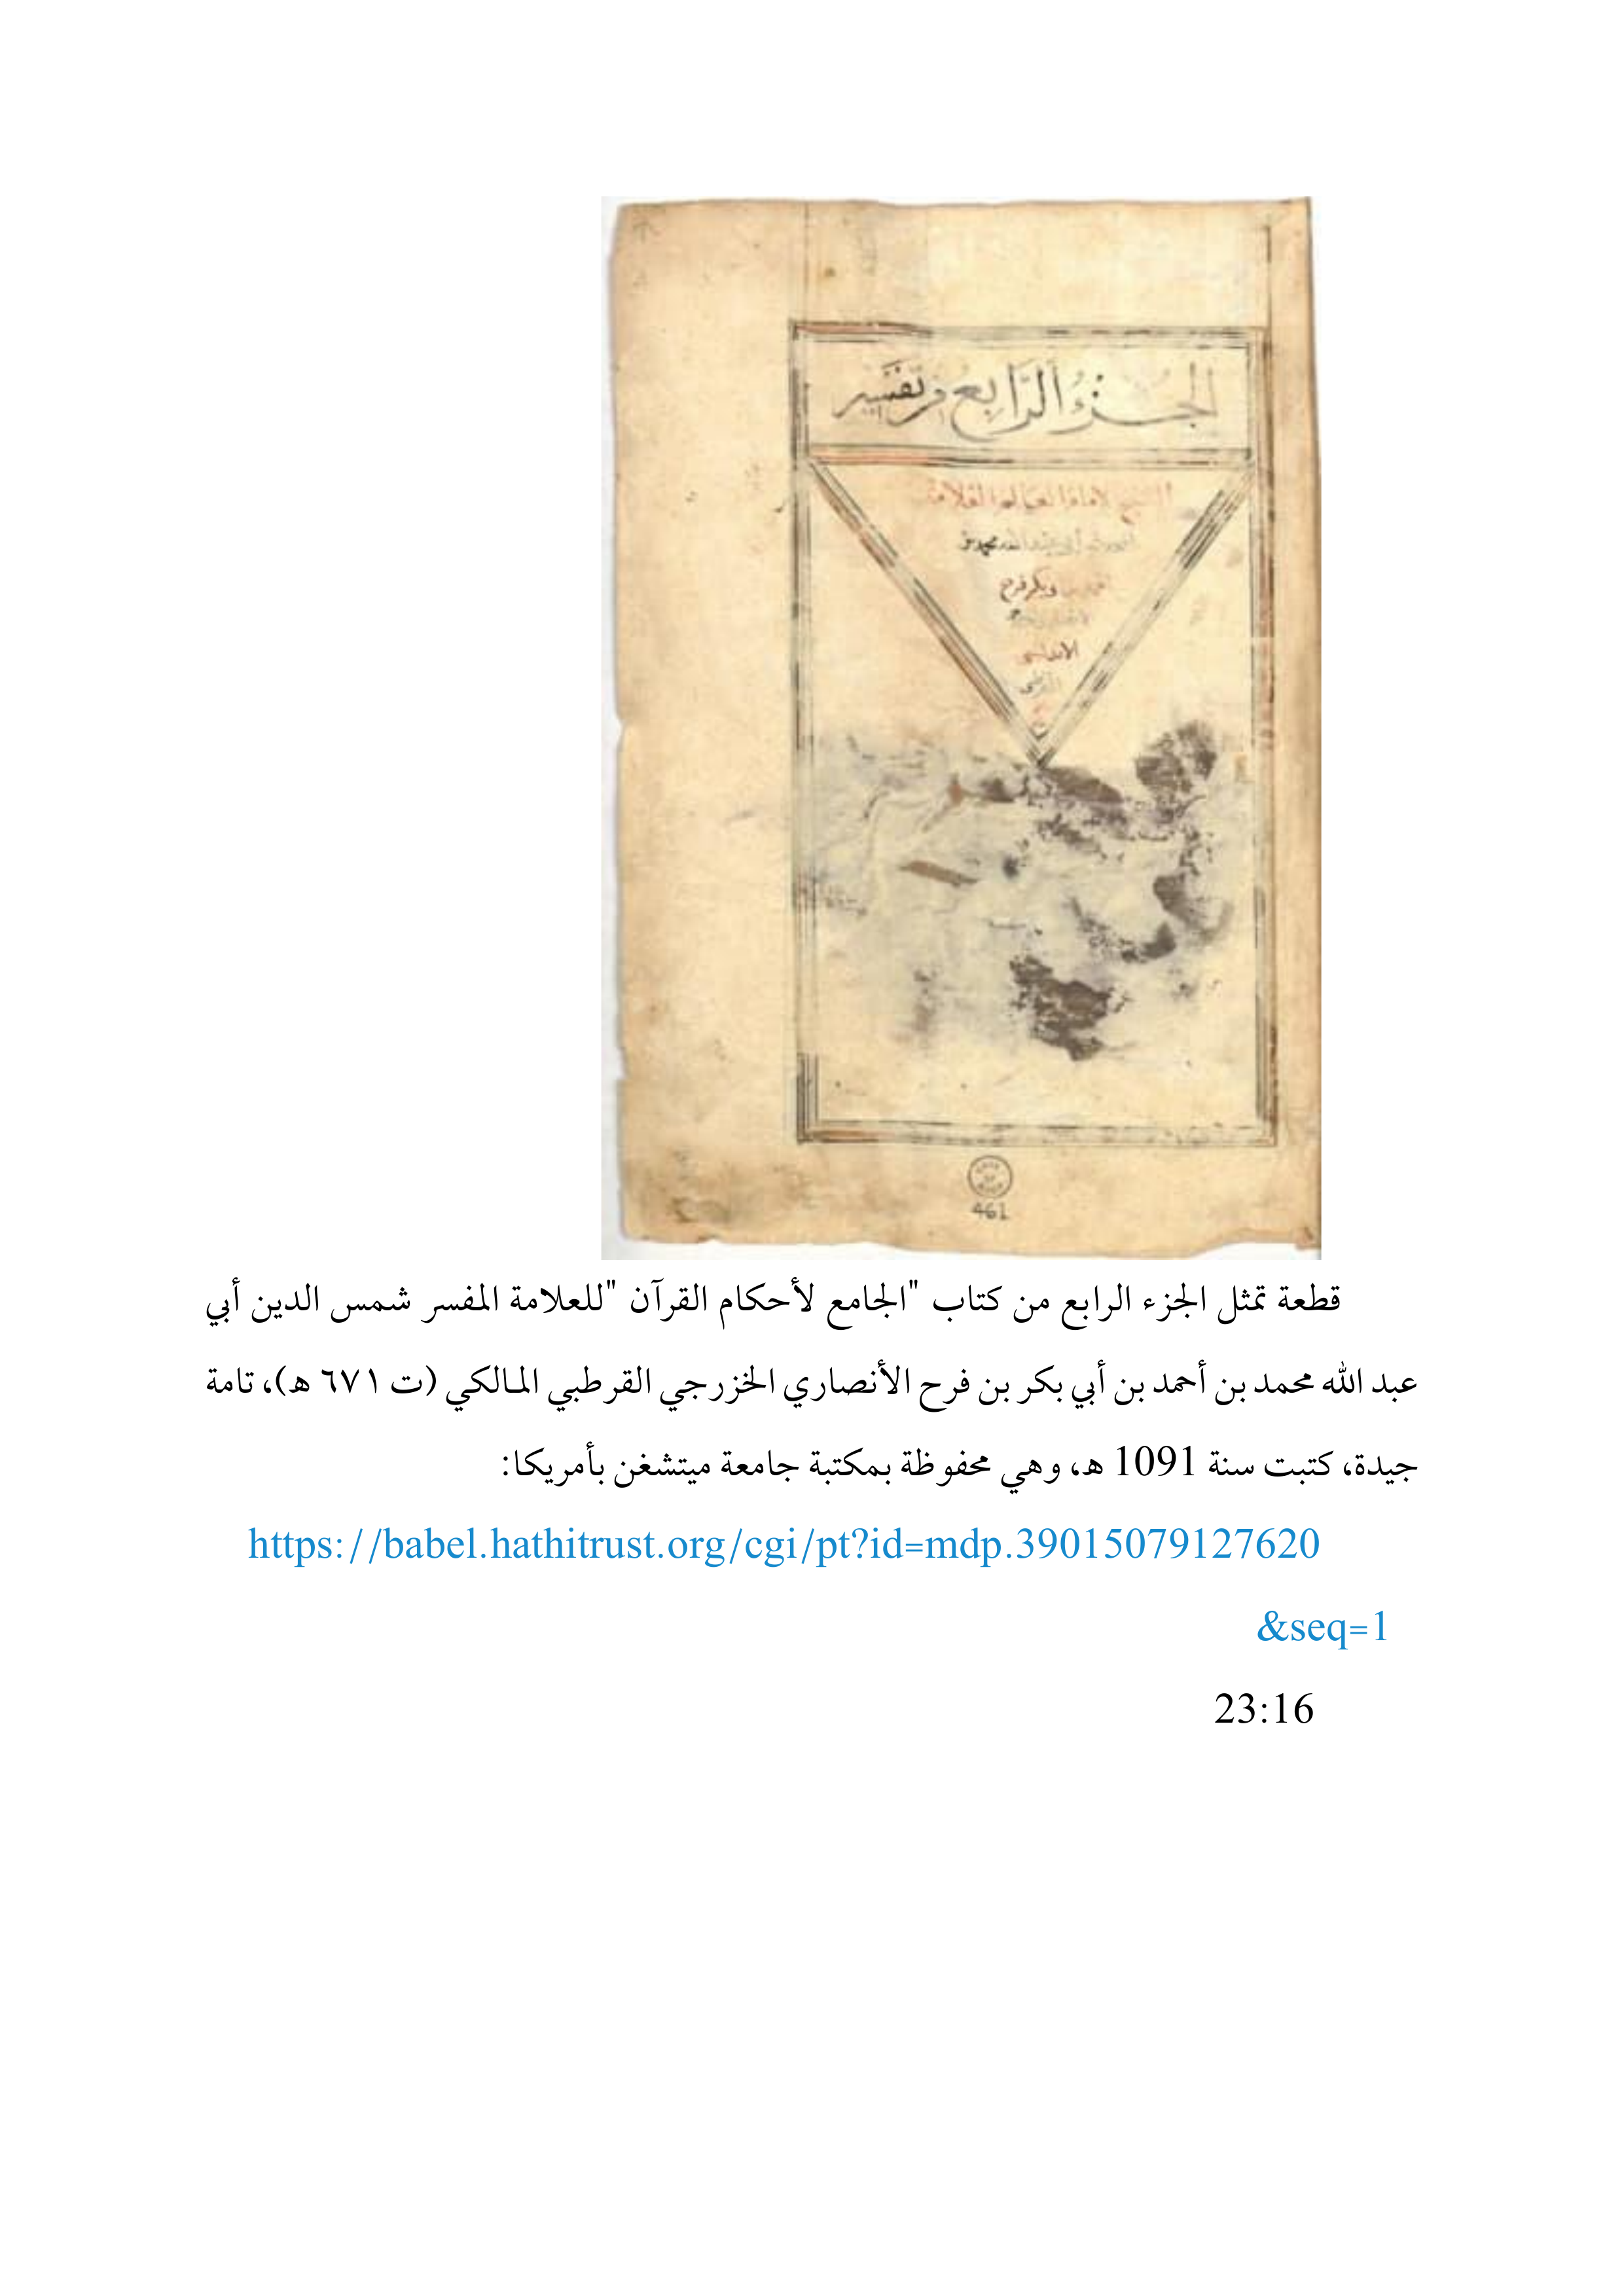 الجزء الرابع من تفسير
الشيخ الامام العالم العلامة
أبي عبد الله محمد بن
بكر فرح
الاندلسي
461
قطعة تمثل الجزء الرابع من كتاب "الجامع لأحكام القرآن "للعلامة المفسر شمس الدين أبي
عبد الله محمد بن أحمد بن أبي بكر بن فرح الأنصاري الخزرجي القرطبي المالكي (ت ٦٧١ هـ)، تامة
جيدة، كتبت سنة 1091 هـ، وهي محفوظة بمكتبة جامعة ميتشغن بأمريكا:
https://babel.hathitrust.org/cgi/pt?id=mdp.39015079127620
&seq=1
23:16